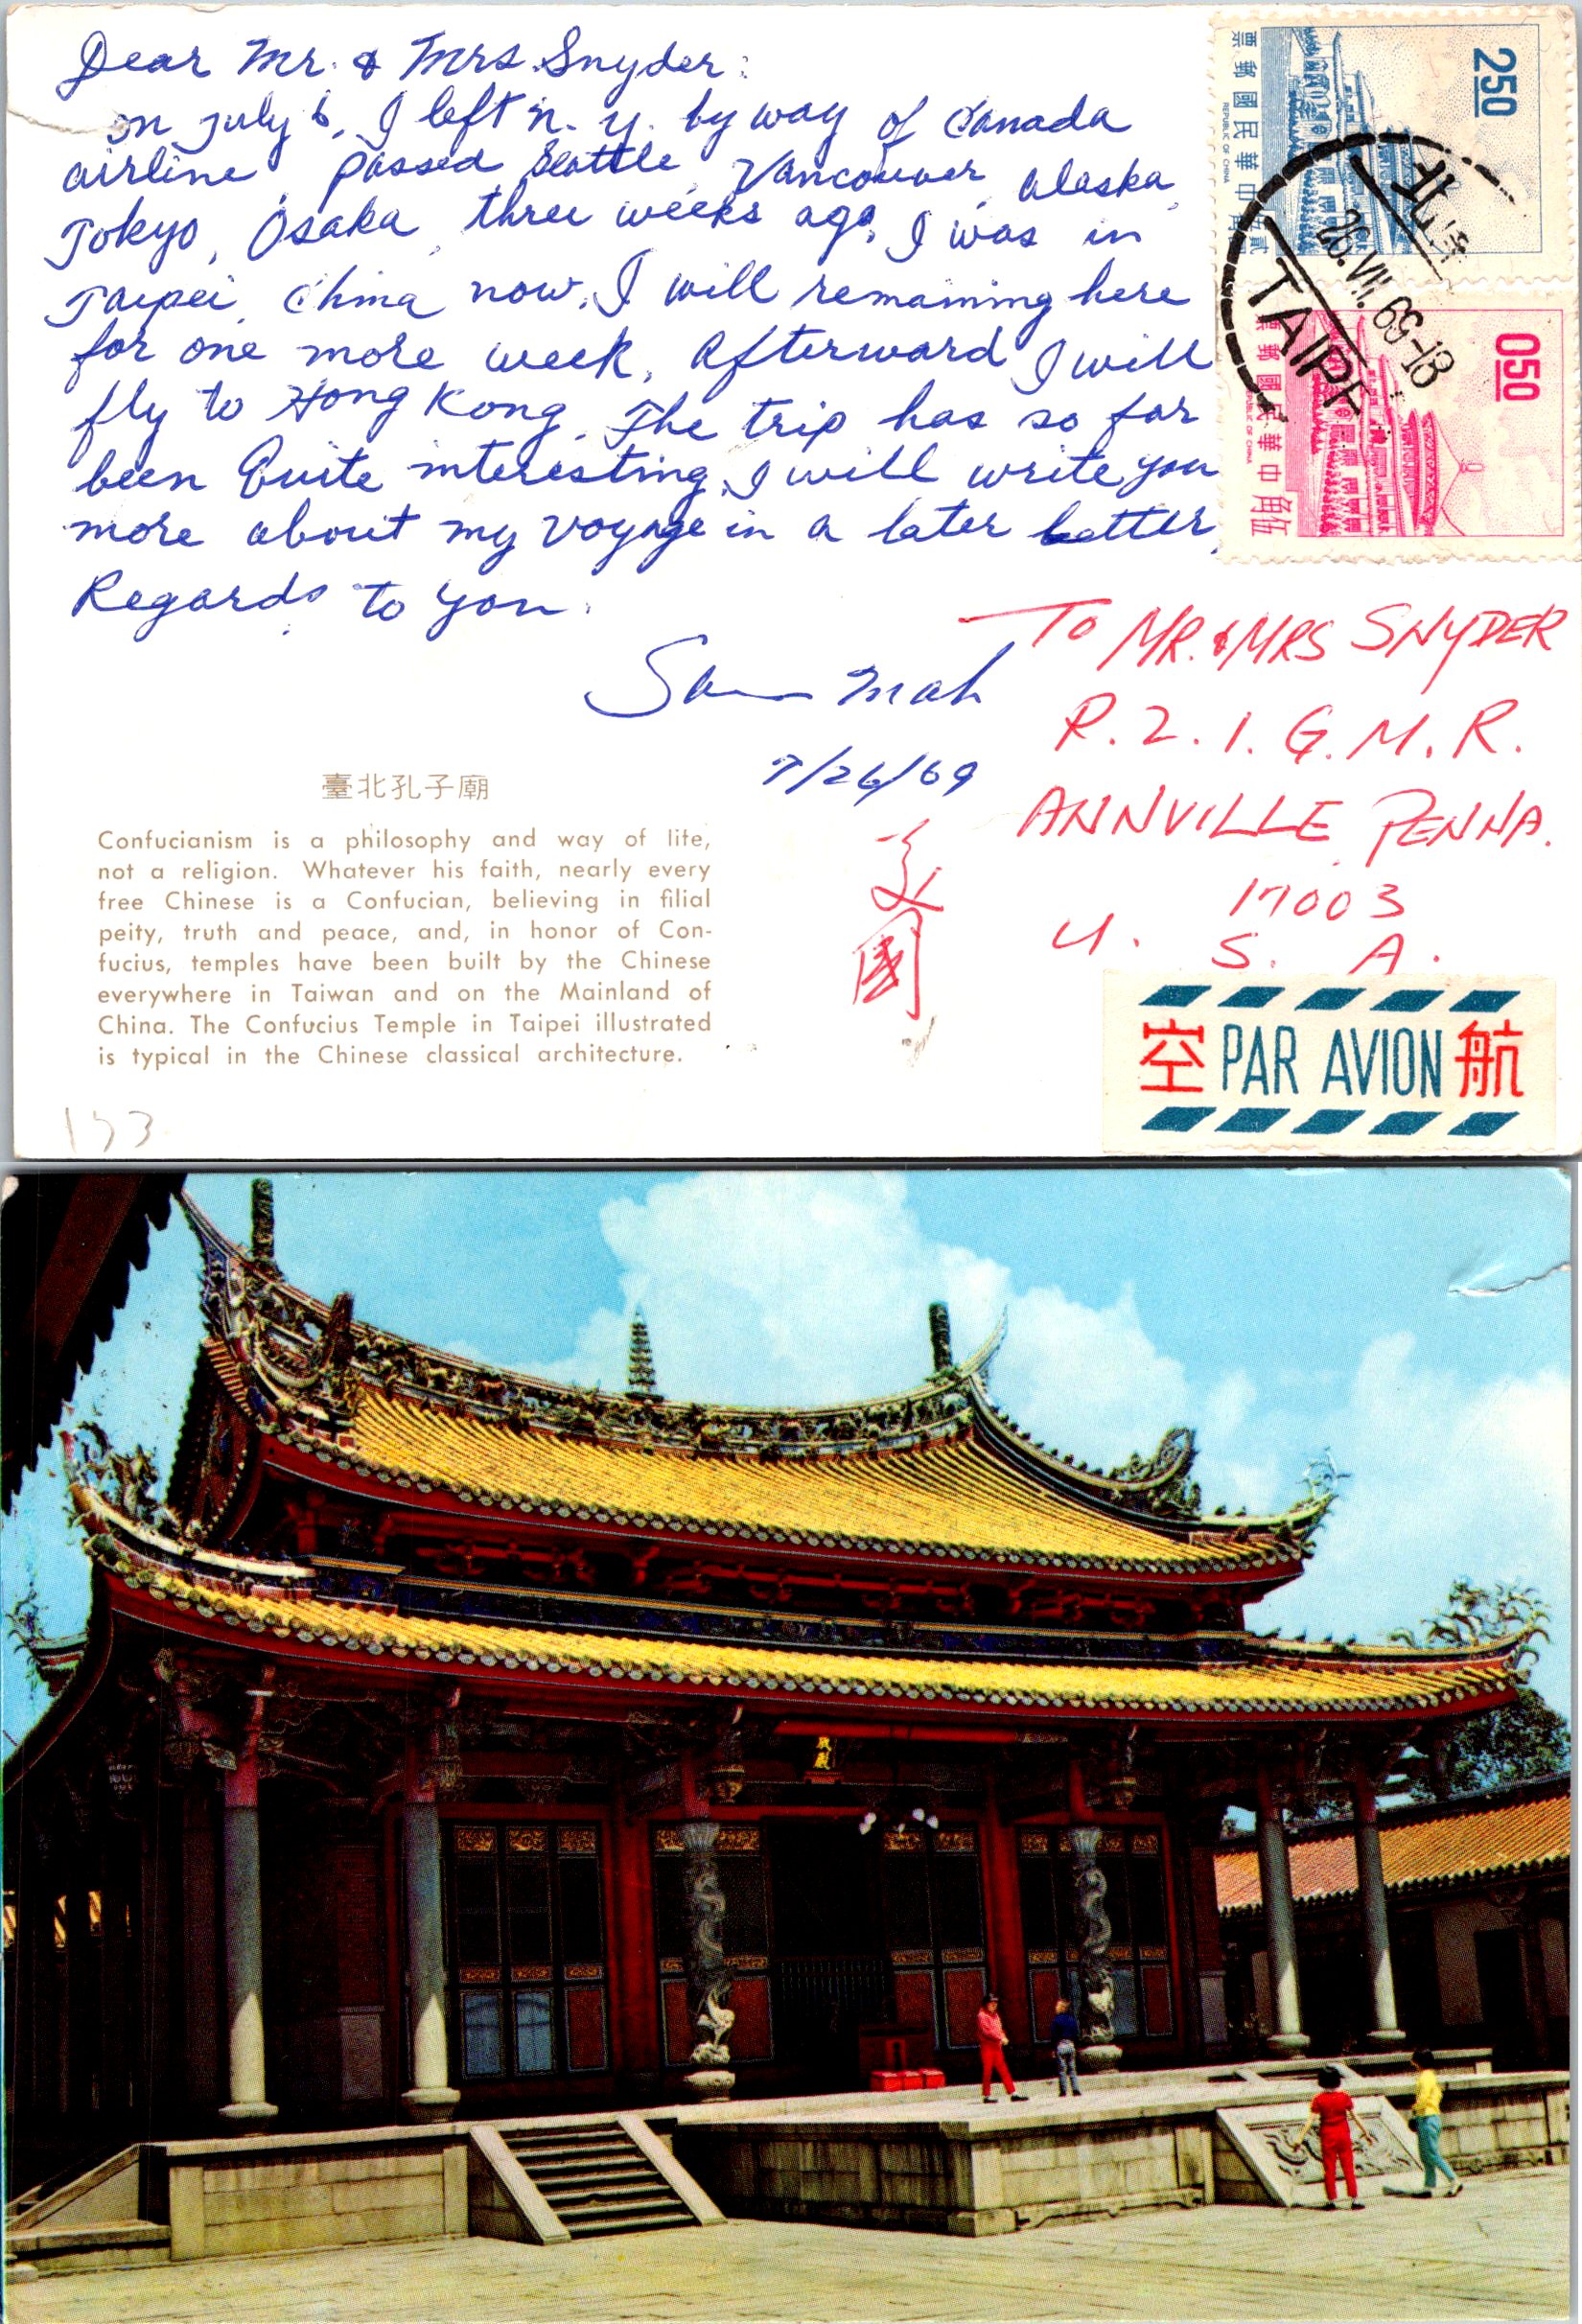 Dear Mr. & Mrs. Snyder:
On July 6, I left n. y. by way of Canada
airline, passed Seattle, Vancouver, Alaska,
Tokyo, Osaka, three weeks ago, I was in
Taipei, China now. I will remaining here
for one more week, Afterward I will
fly to Hong Kong. The trip has so far
been Quite interesting, I will write you
more about my voyage in a later letter,
Regards to you.
Sam Mah
7/26/69
To MR. & MRS SNYDER
R. 2. 1. G. M. R.
ANNVILLE, PENNA.
17003
U. S. A.
美國
臺北孔子廟
Confucianism is a philosophy and way of life,
not a religion. Whatever his faith, nearly every
free Chinese is a Confucian, believing in filial
peity, truth and peace, and, in honor of Con-
fucius, temples have been built by the Chinese
everywhere in Taiwan and on the Mainland of
China. The Confucius Temple in Taipei illustrated
is typical in the Chinese classical architecture.
153
250
票郵國民華中
REPUBLIC OF CHINA
050
票郵國民華中
REPUBLIC OF CHINA
伍角
26.VII.69-18
TAIPE
空 PAR AVION 航